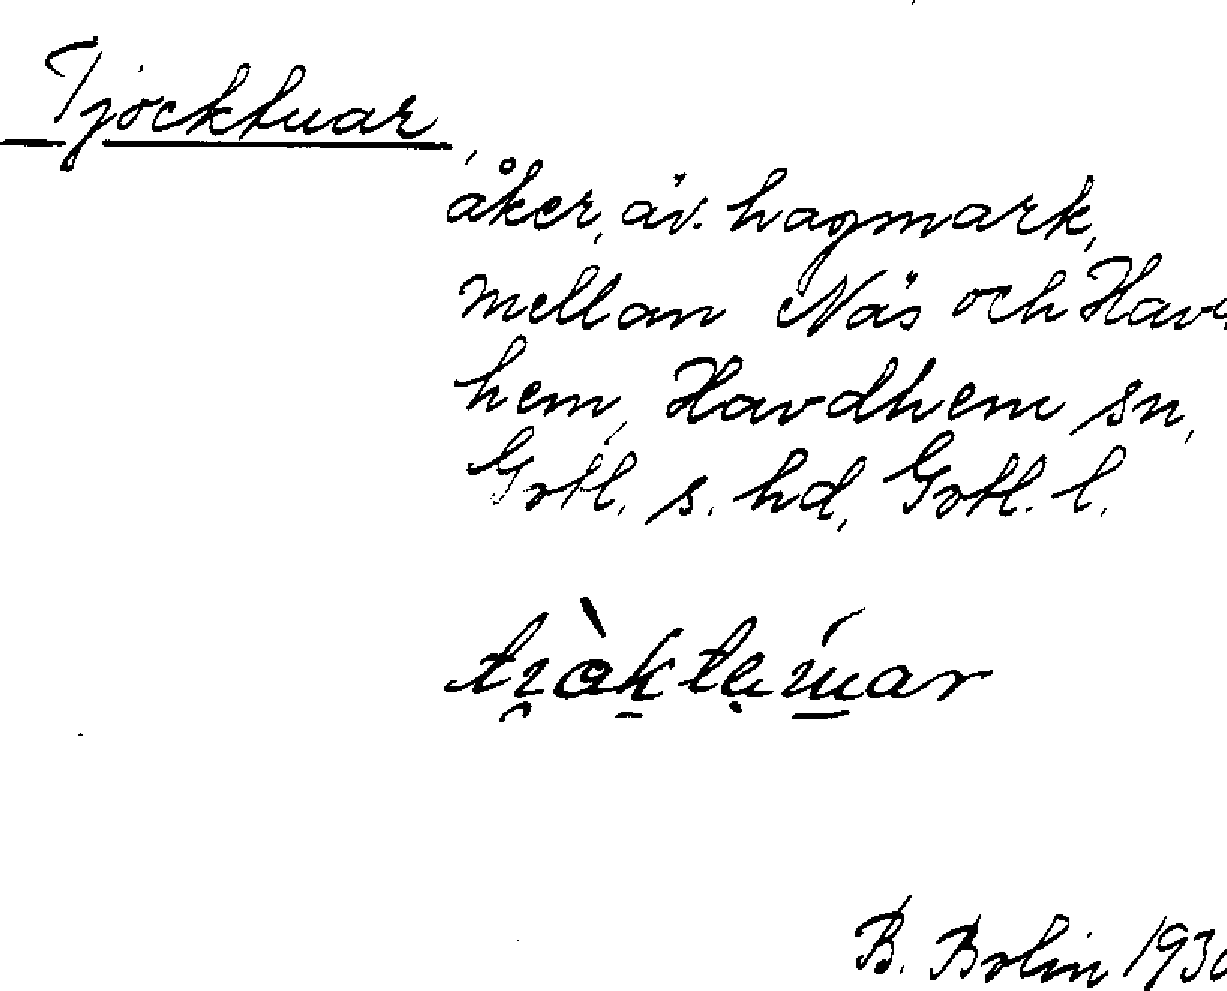 Tjocktuar,
åker, äv. hagmark,
mellan Näs och Hav
hem, Havdhem sn,
Gotl. s. hd, Gotl. l.
B. Bolin 193